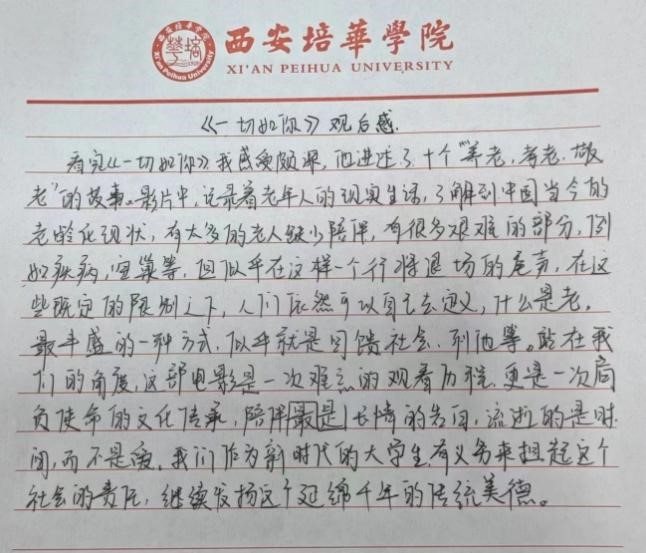 西安培華學院
XI'AN PEIHUA UNIVERSITY
《一切如你》观后感.
看完《一切如你》我感受颇深,他讲述了十个"养老,孝老,敬
老"的故事。影片中,记录着老年人的现实生活,了解到中国当今的
老龄化现状,有太多的老人缺少陪伴,有很多艰难的部分,例
如疾病,空巢等,但似乎在这样一个行将退场的尾声,在这
些既定的限制之下,人们依然可以自己去定义,什么是老,
最丰盛的一种方式,似乎就是回馈社会,利他等。站在我
们的角度,这部电影是一次难忘的观看历程,更是一次肩
负使命的文化传承,陪伴最是长情的告白,流逝的是时
间,而不是爱,我们作为新时代的大学生,有义务来担起这个
社会的责任,继续发扬这个延绵千年的传统美德。